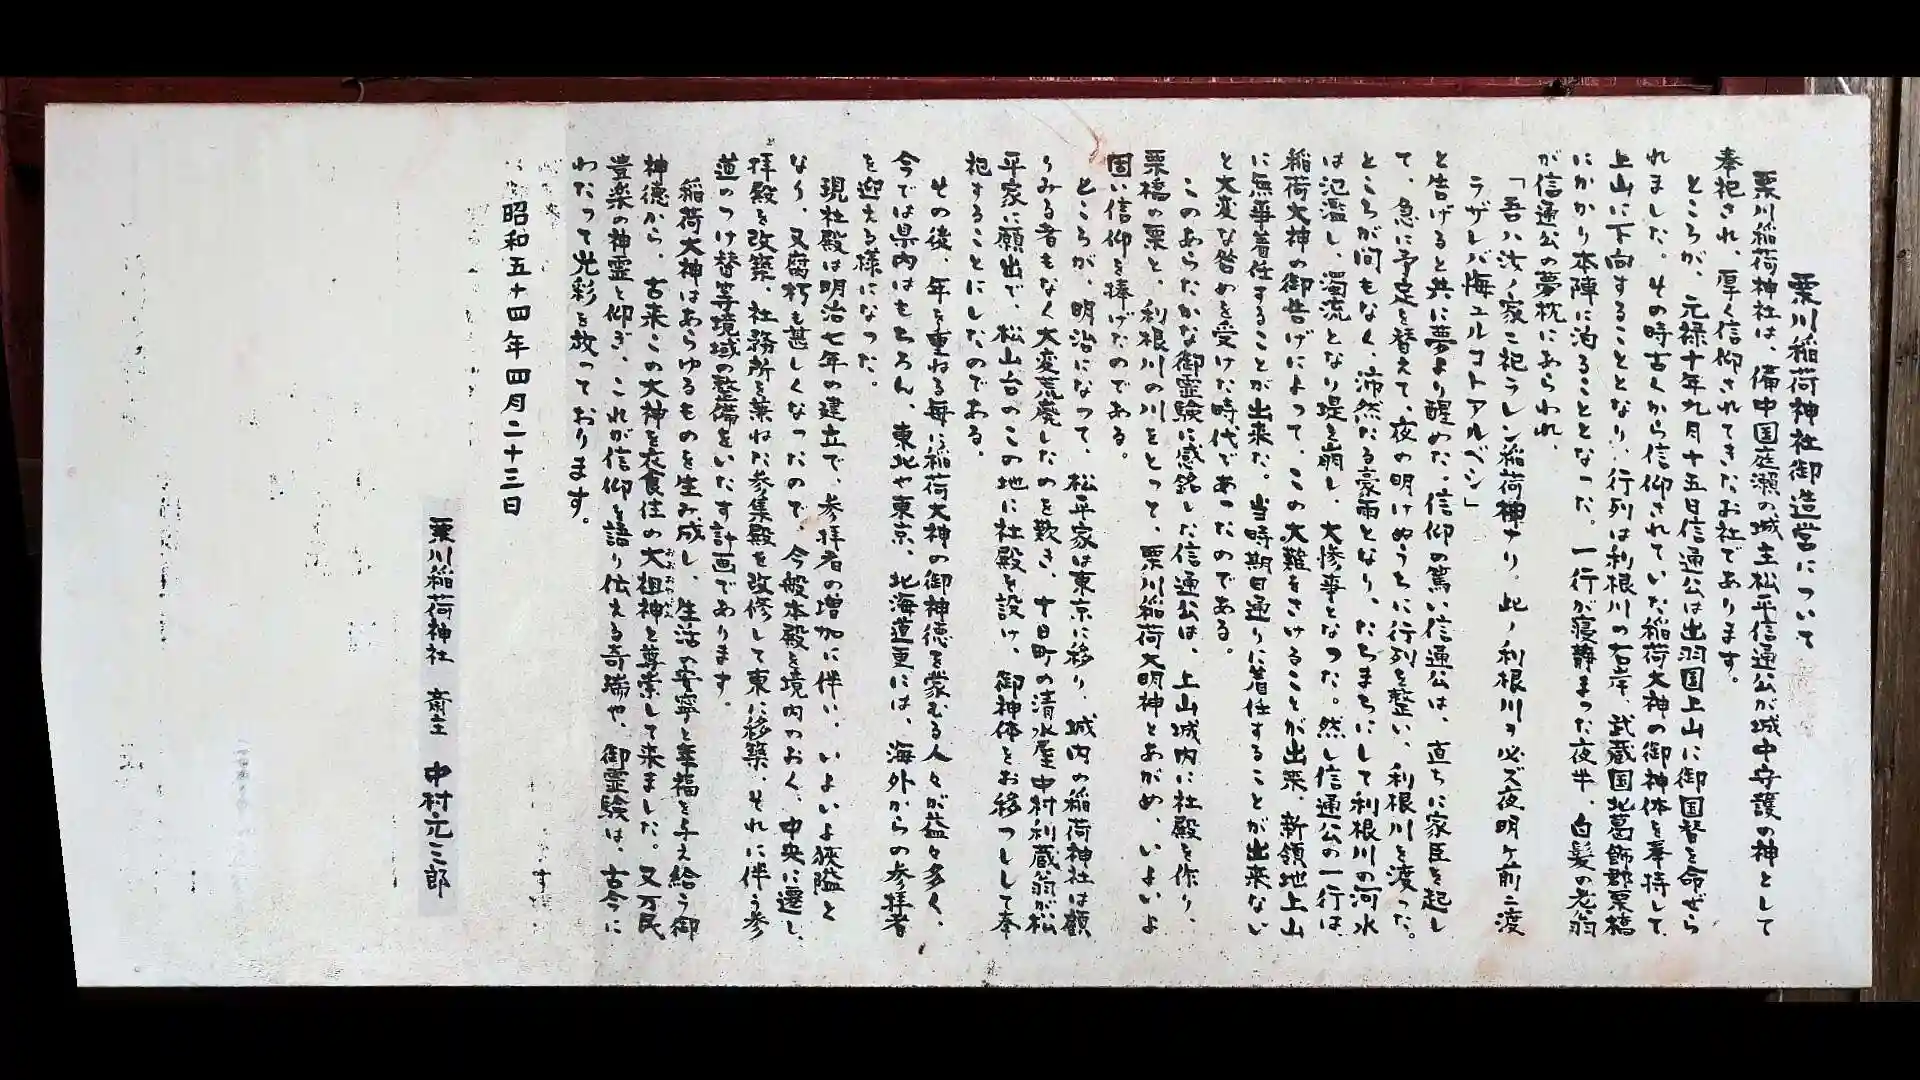 栗川稲荷神社御造営について
栗川稲荷神社は、備中国庭瀬の城主松平信通公が城中守護の神として
奉祀され、厚く信仰されてきたお社であります。
ところが、元禄十年九月十五日信通公は出羽国上山に御国替を命ぜら
れました。その時古くから信仰されていた稲荷大神の御神体を奉持して、
上山に下向することとなり、行列は利根川の右岸、武蔵国北葛飾郡栗橋
にかかり本陣に泊ることとなった。一行が寝静まった夜半、白髪の老翁
が信通公の夢枕にあらわれ、
「吾ハ汝ノ家ニ祀ラレン稲荷神ナリ。此ノ利根川ヲ必ズ夜明ケ前ニ渡
ラザレバ悔ユルコトアルベシ」
と告げると共に夢より醒めた。信仰の篤い信通公は、直ちに家臣を起し
て、急に予定を替えて、夜の明けぬうちに行列を整い、利根川を渡った。
ところが間もなく、沛然たる豪雨となり、たちまちにして利根川の河水
は氾濫し、濁流となり堤を崩し、大惨事となった。然し信通公の一行は、
稲荷大神の御告げによって、この大難をさけることが出来、新領地上山
に無事着任することが出来た。当時期日通りに着任することが出来ない
と大変な咎めを受けた時代であったのである。
このあらたかな御霊験に感銘した信通公は、上山城内に社殿を作り、
栗橋の栗と、利根川の川をとって、栗川稲荷大明神とあがめ、いよいよ
固い信仰を捧げたのである。
ところが、明治になって、松平家は東京に移り、城内の稲荷神社は顧
りみる者もなく大変荒廃したのを歎き、十日町の清水屋中村利蔵翁が松
平家に願出で、松山台のこの地に社殿を設け、御神体をお移つしして奉
祀することにしたのである。
その後、年を重ねる毎に稲荷大神の御神徳を蒙むる人々が益々多く、
今では県内はもちろん、東北や東京、北海道更には、海外からの参拝者
を迎える様になった。
現社殿は明治七年の建立で、参拝者の増加に伴い、いよいよ狭隘と
なり、又腐朽も甚しくなったので、今般本殿を境内のおく、中央に遷し、
拝殿を改築、社務所を兼ねた参集殿を改修して東に移築、それに伴う参
道のつけ替等境域の整備をいたす計画であります。
稲荷大神はあらゆるものを生み成し、生活の安寧と幸福を与え給う御
神徳から、古来この大神を衣食住の大祖神と尊崇して来ました。又万民
豊楽の神霊と仰ぎ、これが信仰を語り伝える奇瑞や、御霊験は、古今に
わたって光彩を放っております。
昭和五十四年四月二十三日
栗川稲荷神社 斎主 中村元三郎